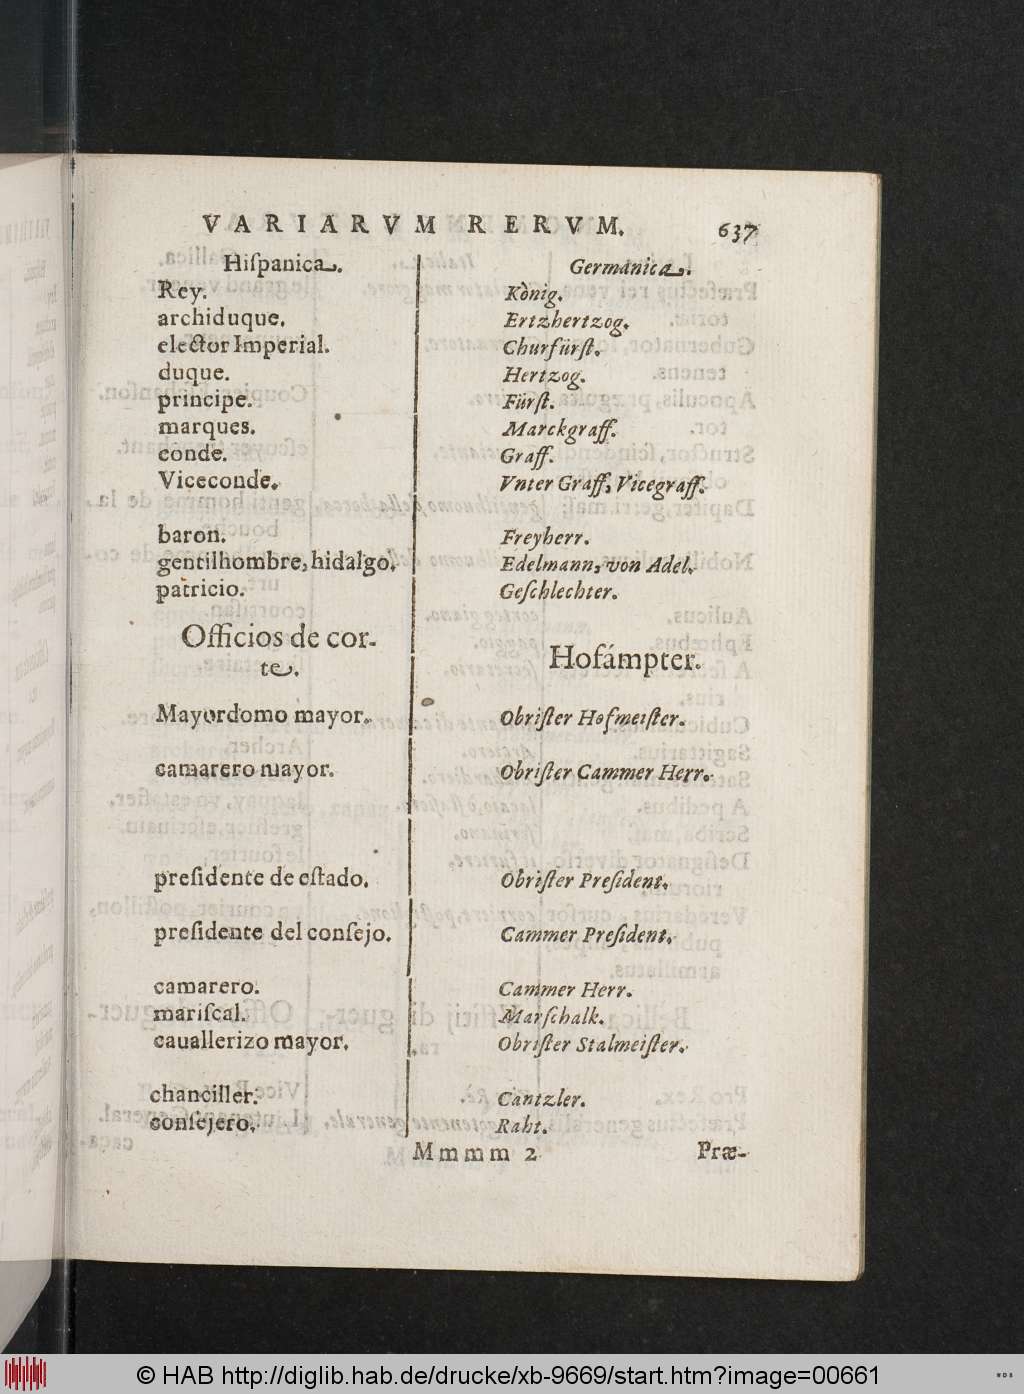 VARIARVM RERVM. 637
Hiſpanica. Germanica.
Rey. König.
archiduque. Ertzhertzog.
elector Imperial. Churfürſt.
duque. Hertzog.
principe. Fürſt.
marques. Marckgraff.
conde. Graff.
Viceconde. Vnter Graff, Vicegraff.
baron. Freyherr.
gentilhombre, hidalgo. Edelmann, von Adel.
patricio. Geſchlechter.
Officios de cor-
te.
Hofámpter.
Mayordomo mayor. Obriſter Hofmeiſter.
camarero mayor. Obriſter Cammer Herr.
preſidente de eſtado. Obriſter Preſident.
preſidente del conſejo. Cammer Preſident.
camarero. Cammer Herr.
mariſcal. Marſchalk.
cauallerizo mayor. Obriſter Stalmeiſter.
chanciller. Cantzler.
conſejero. Raht.
Mmmm 2 Præ-
© HAB http://diglib.hab.de/drucke/xb-9669/start.htm?image=00661